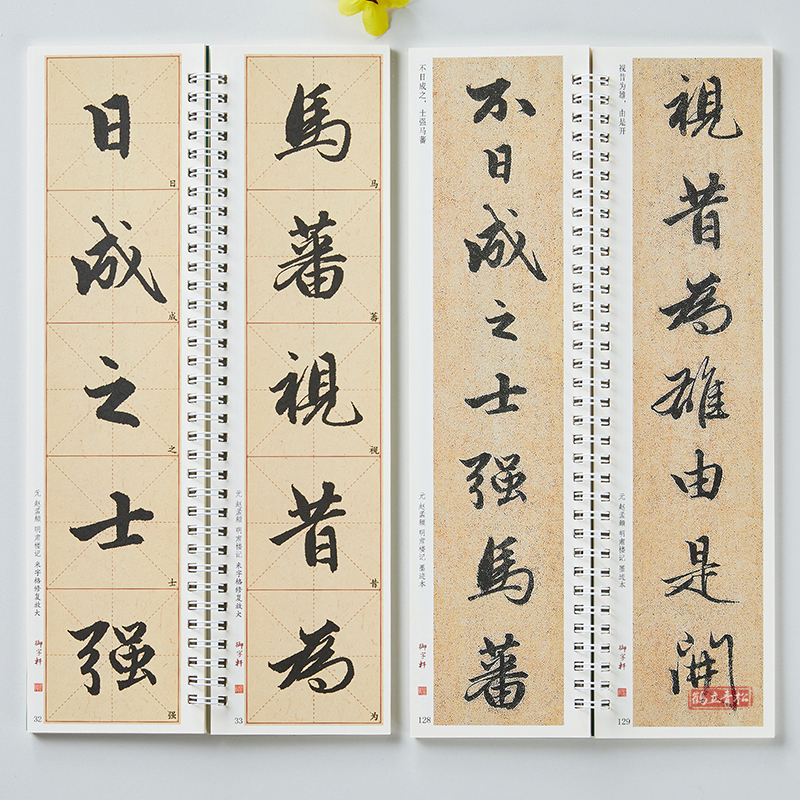 日
日
成
成
之
之
士
士
强
强
元 赵孟頫 明肃楼记 米字格修复放大
御字轩
32
馬
马
蕃
蕃
視
视
昔
昔
為
为
元 赵孟頫 明肃楼记 米字格修复放大
御字轩
33
不日成之，士强马蕃
不日成之士强馬蕃
元 赵孟頫 明肃楼记 墨迹本
御字轩
128
视昔为雄，由是开
視昔為雄由是開
元 赵孟頫 明肃楼记 墨迹本
御字轩
129
鹤立青松